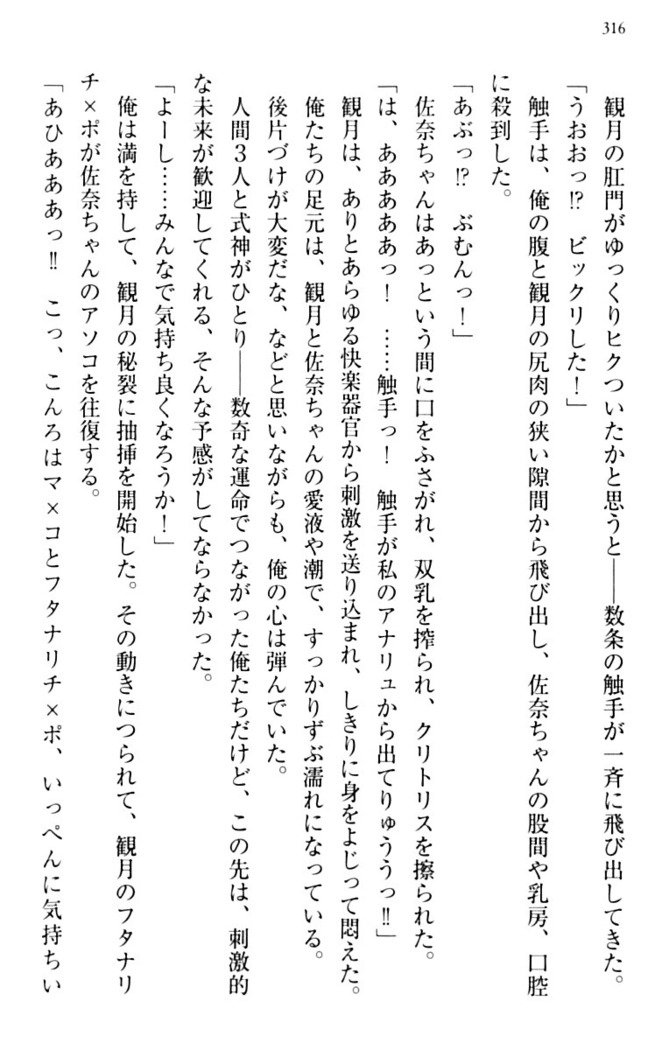 316
観月の肛門がゆっくりヒクついたかと思うと――数条の触手が一斉に飛び出してきた。
「うおおっ!?　ビックリした！」
触手は、俺の腹と観月の尻肉の狭い隙間から飛び出し、佐奈ちゃんの股間や乳房、口腔
に殺到した。
「あぶっ!?　ぶむんっ！」
佐奈ちゃんはあっという間に口をふさがれ、双乳を搾られ、クリトリスを擦られた。
「は、あああああっ！　……触手っ！　触手が私のアナリュから出てりゅううっ!!」
観月は、ありとあらゆる快楽器官から刺激を送り込まれ、しきりに身をよじって悶えた。
俺たちの足元は、観月と佐奈ちゃんの愛液や潮で、すっかりずぶ濡れになっている。
後片づけが大変だな、などと思いながらも、俺の心は弾んでいた。
人間３人と式神がひとり――数奇な運命でつながった俺たちだけど、この先は、刺激的
な未来が歓迎してくれる、そんな予感がしてならなかった。
「よーし……みんなで気持ち良くなろうか！」
俺は満を持して、観月の秘裂に抽挿を開始した。その動きにつられて、観月のフタナリ
チ×ポが佐奈ちゃんのアソコを往復する。
「あひあああっ!!　こっ、こんろはマ×コとフタナリチ×ポ、いっぺんに気持ちい